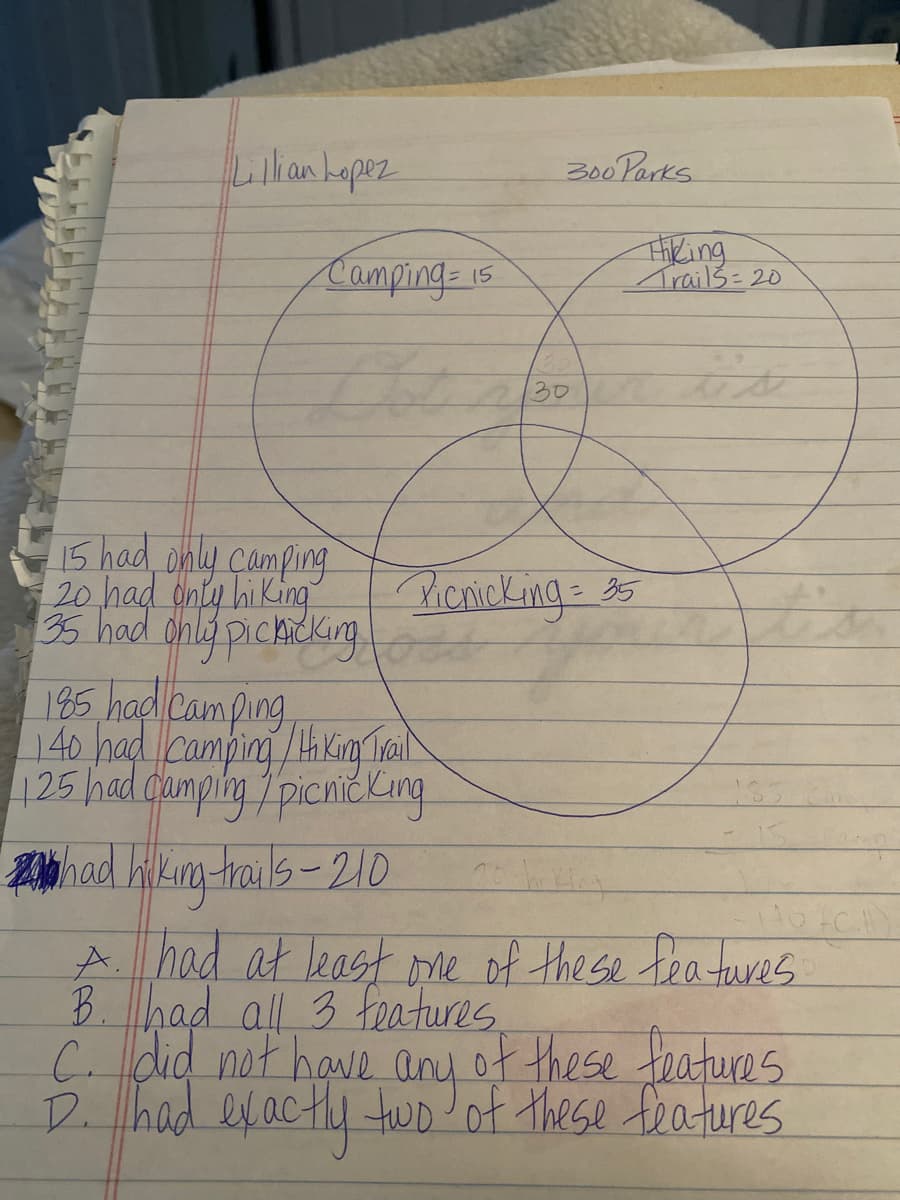 Lillian Lopez
300 Parks
Camping = 15
Hiking
Trails = 20
30
15 had only camping
20 had only hiking
35 had only picnicking
Picnicking = 35
185 had camping
140 had camping / Hiking Trail
125 had camping / picnicking
had hiking trails - 210
A. had at least one of these features
B. had all 3 features
C. did not have any of these features
D. had exactly two of these features